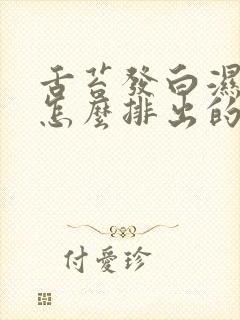 舌苔發白濕
怎麼排出的
付愛珍